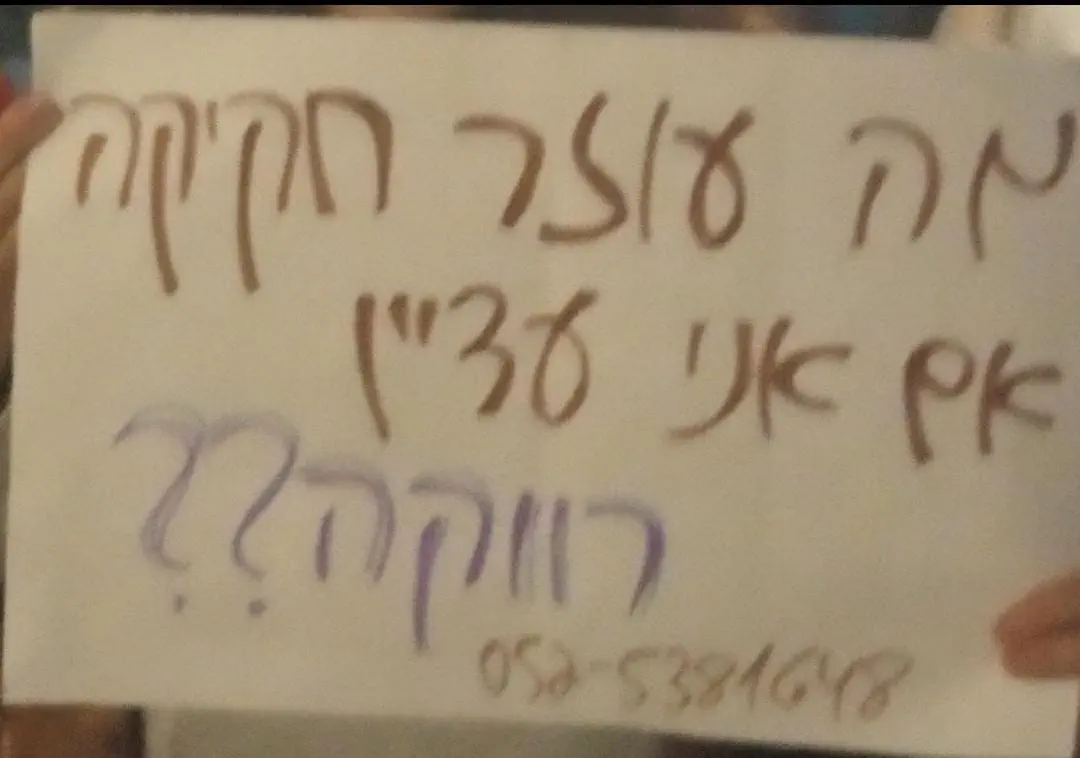 מה עוזר חקיקה
אם אני עדיין
רווקה??
052-5381648